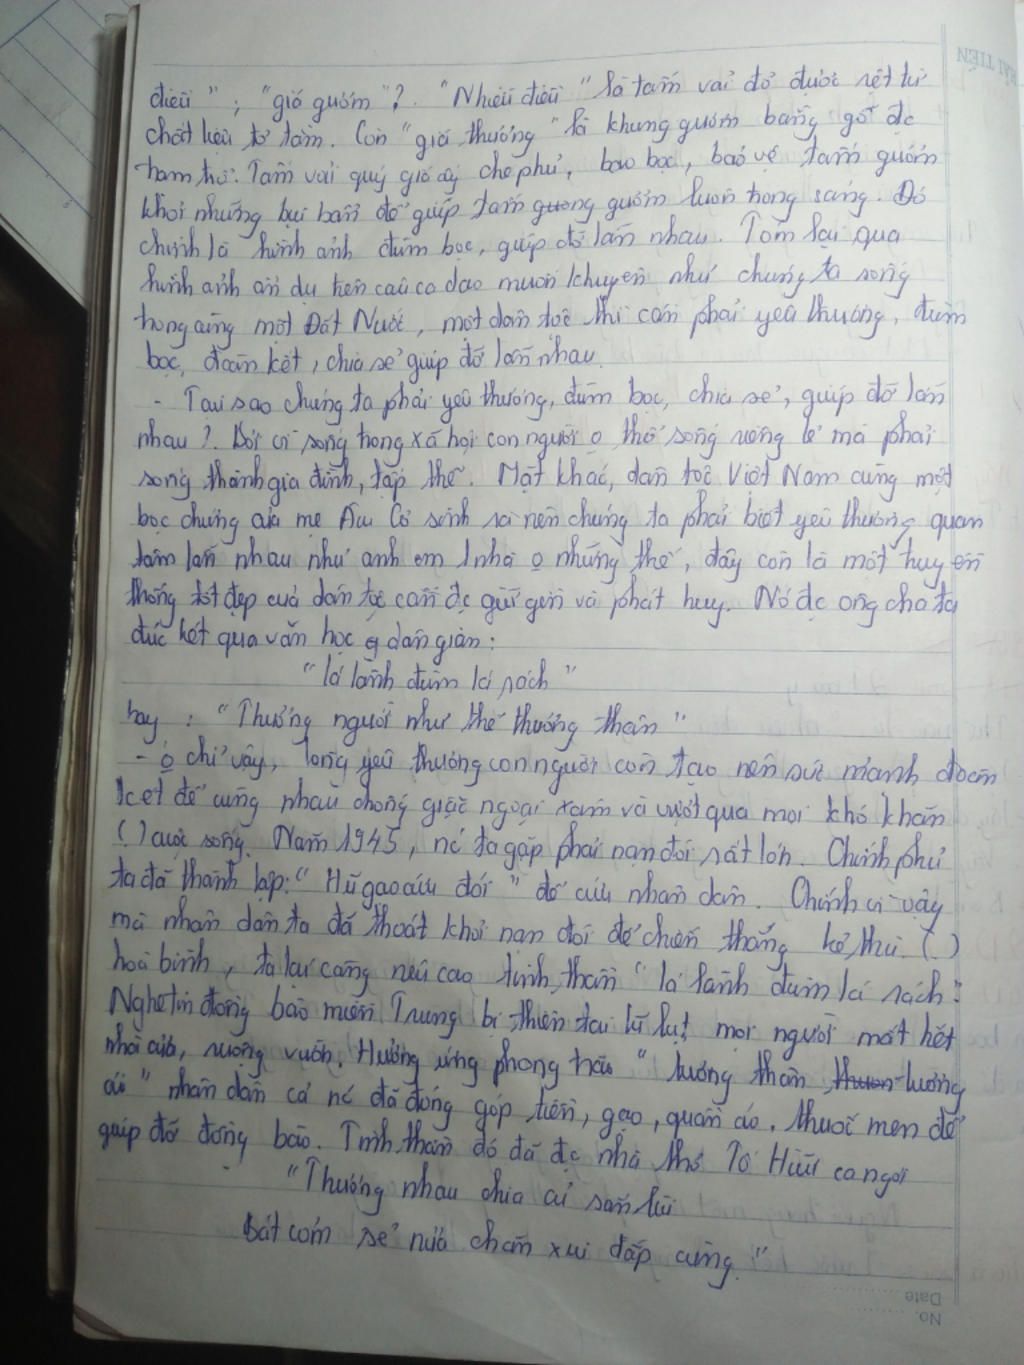 điều" ; "giá gương"?. "Nhiễu điều" là tấm vải đỏ được dệt từ
chất liệu tơ tằm. Còn "giá thương" là khung gương bằng gỗ đc
trạm trổ. Tấm vải quý giá ấy che phủ, bao bọc, bảo vệ tấm gương
khỏi những bụi bẩn để giúp tấm gương gương luôn trong sáng. Đó
chính là hình ảnh đùm bọc, giúp đỡ lẫn nhau. Tóm lại qua
hình ảnh ẩn dụ trên câu ca dao muốn khuyên như chúng ta sống
trong cùng một Đất Nước, một dân tộc thì cần phải yêu thương, đùm
bọc, đoàn kết, chia sẻ giúp đỡ lẫn nhau.
- Tại sao chúng ta phải yêu thương, đùm bọc, chia sẻ, giúp đỡ lẫn
nhau?. Bởi vì sống trong xã hội con người o thể sống riêng lẻ mà phải
sống thành gia đình, tập thể. Mặt khác, dân tộc Việt Nam cùng một
bọc chứng của mẹ Âu Cơ sinh ra nên chúng ta phải biết yêu thương, quan
tâm lẫn nhau như anh em 1 nhà o những thế, đây còn là một truyền
thống tốt đẹp của dân tộc cần đc giữ gìn và phát huy. Nó đc ông cha ta
đúc kết qua văn học g dân gian:
"lá lành đùm lá rách"
hay : "Thương người như thể thương thân"
- o chỉ vậy, lòng yêu thương con người còn tạo nên sức mạnh đoàn
kết để cùng nhau chống giặc ngoại xâm và vượt qua mọi khó khăn
( ) cuộc sống. Năm 1945, nc ta gặp phải nạn đói rất lớn. Chính phủ
ta đã thành lập: "Hũ gạo cứu đói" để cứu nhân dân. Chính vì vậy
mà nhân dân ta đã thoát khỏi nạn đói để chiến thắng kẻ thù. ( )
hoà bình, ta lại càng nêu cao tinh thần "lá lành đùm lá rách".
Nghe tin đồng bào miền Trung bị thiên tai lũ lụt mọi người mất hết
nhà cửa, ruộng vườn. Hưởng ứng phong trào "tương thân thươn tương
ái" nhân dân cả nc đã đóng góp tiền, gạo, quần áo, thuốc men để
giúp đỡ đồng bào. Tinh thần đó đã đc nhà thơ Tố Hữu ca ngợi
"Thương nhau chia củ sắn lùi
Bát cơm sẻ nửa chăn xui đắp cùng."
No. ........
Date
HẢI TIẾN